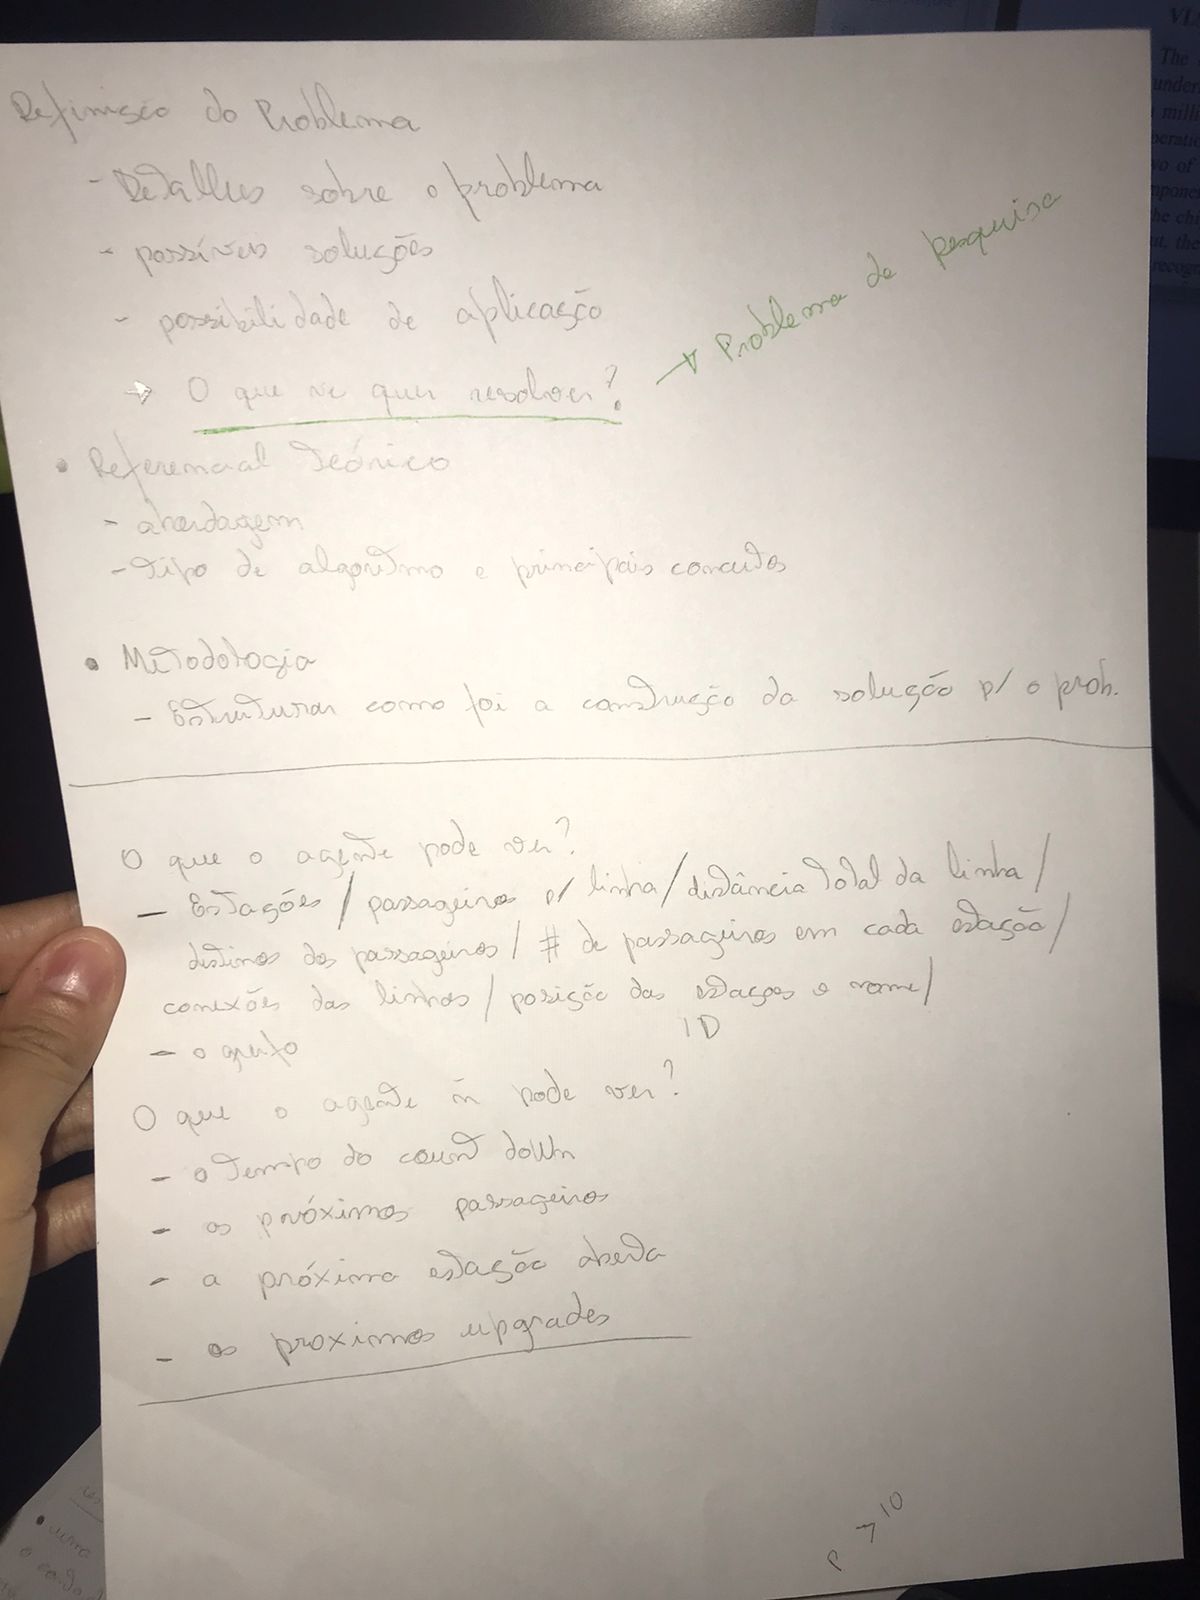 Definição do Problema
- Detalhes sobre o problema
- possíveis soluções
- possibilidade de aplicação
→ O que se quer resolver?
→ Problema de pesquisa
• Referencial Teórico
- abordagem
- Tipo de algoritmo e principais conceitos
• Metodologia
- Estruturar como foi a construção da solução p/ o prob.
O que o agente pode ver?
- Estações / passageiros p/ linha / distância total da linha /
destinos dos passageiros / # de passageiros em cada estação /
conexões das linhas / posição das estações e nome /
ID
- o grafo
O que o agente ñ pode ver?
- o tempo do count down
- os próximos passageiros
- a próxima estação aberta
- os proximos upgrades
P → 10
VI
The
under
mill
perati
vo of
mponen
he ch
ut, the
recogn